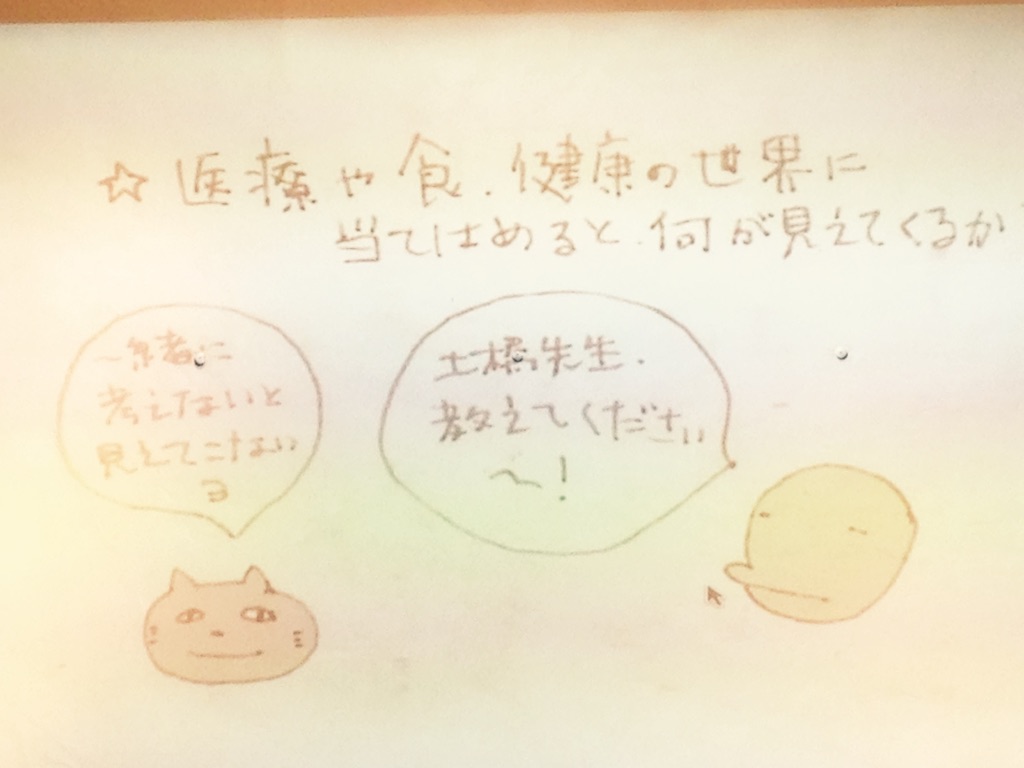 ☆医療や食、健康の世界に
当てはめると、何が見えてくるか
一緒に
考えないと
見えてこない
ヨ
土橋先生、
教えてください
〜！